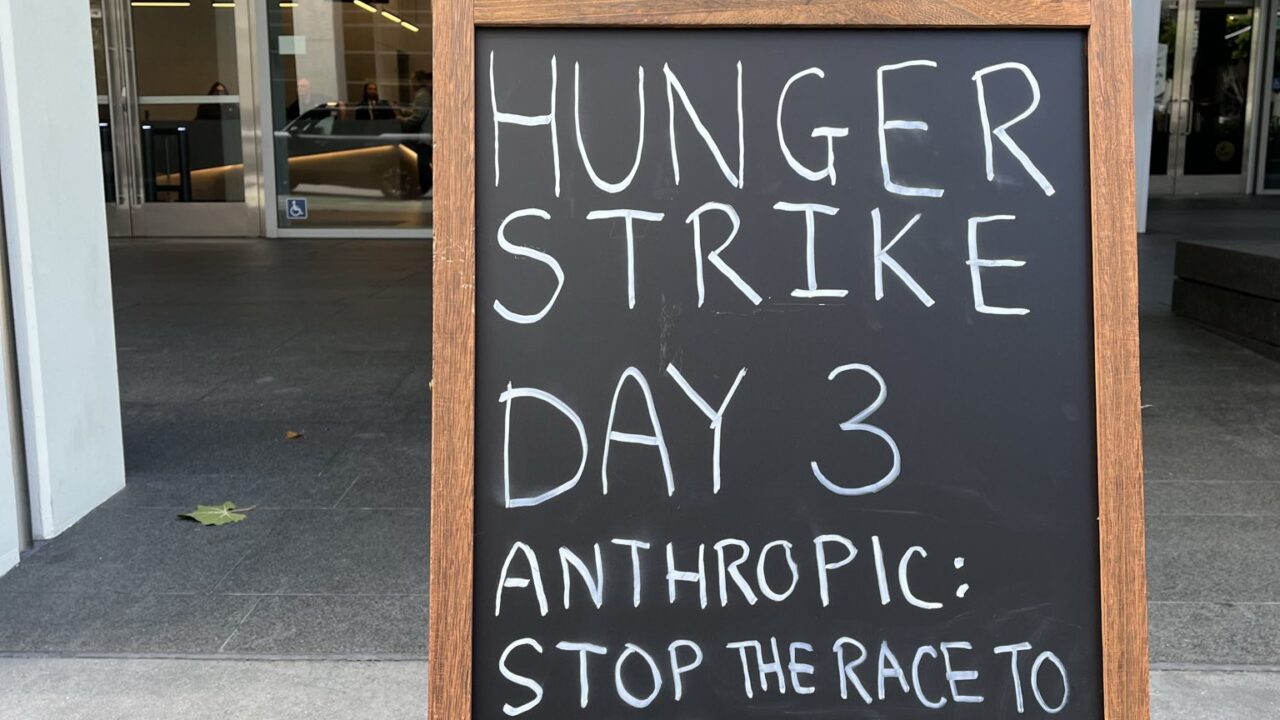 HUNGER
STRIKE
DAY 3
ANTHROPIC:
STOP THE RACE TO